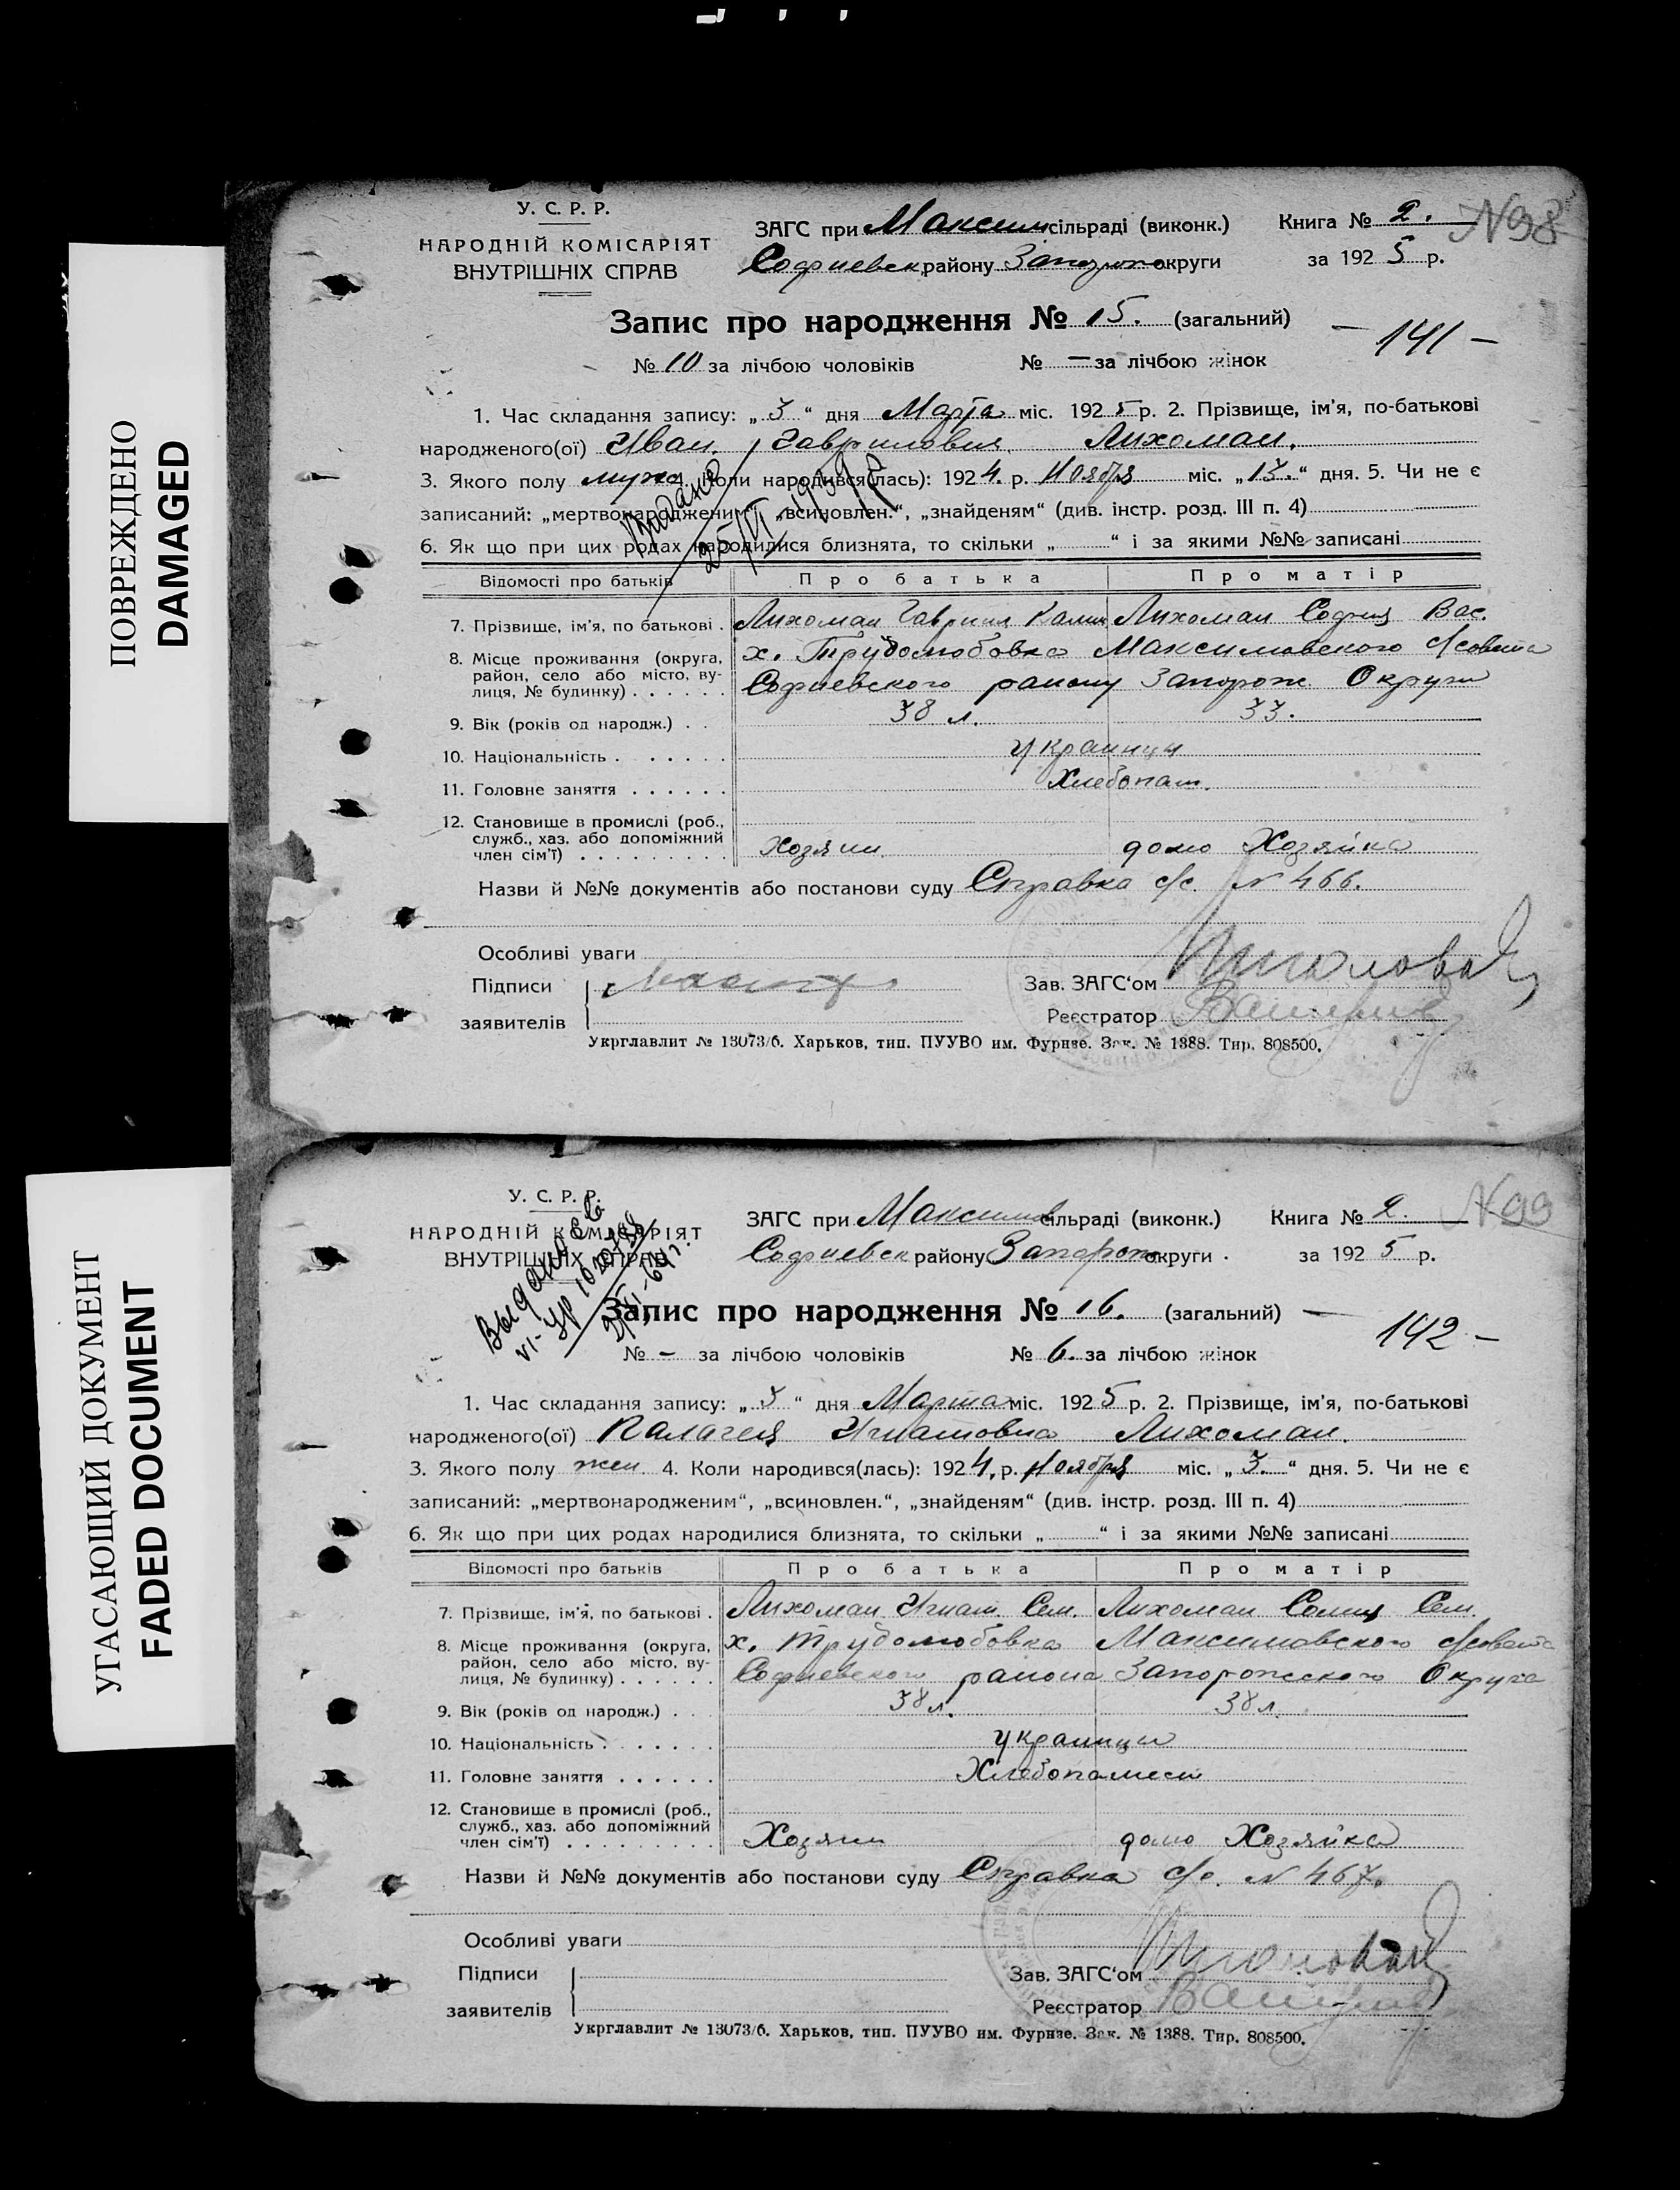 ПОВРЕЖДЕНО
DAMAGED
УГАСАЮЩИЙ ДОКУМЕНТ
FADED DOCUMENT
У. С. Р. Р.
НАРОДНІЙ КОМІСАРІЯТ
ВНУТРІШНІХ СПРАВ
ЗАГС при Максим сільраді (виконк.)
Софиевск району Запорож округи
Книга № 2. N98
за 1925 р.
Запис про народження № 15. (загальний)
— 141 —
№ 10 за лічбою чоловіків № — за лічбою жінок
1. Час складання запису: „ 3 “ дня Марта міс. 1925 р. 2. Прізвище, ім'я, по-батькові
народженого(ої) Иван Гаврилович Лихоман.
3. Якого полу муж. 4. Коли народився(лась): 1924. р. Ноября міс. „ 13. “ дня. 5. Чи не є
записаний: „мертвонародженим“, „всиновлен.“, „знайденям“ (див. інстр. розд. III п. 4)
6. Як що при цих родах народилися близнята, то скільки „ “ і за якими №№ записані
Відомости про батьків Про батька Про матір
7. Прізвище, ім'я, по батькові . Лихоман Гаврил Калин Лихоман София Вас.
8. Місце проживання (округа, район, село або місто, вулиця, № будинку) . . . . . . х. Трудолюбовка Максимовского с/совета
Софиевского району Запорож Округи
9. Вік (років од народж.) . . 38 л. 33.
10. Національність . . . . . . . украинцы
11. Головне заняття . . . . . . Хлебопаш.
12. Становище в промислі (роб.,
служб., хаз. або допоміжний
член сім'ї) . . . . . . . . . Хозяин домо Хозяйка
Назви й №№ документів або постанови суду Справка с/с. N 466.
Особливі уваги
Підписи
заявителів
Зав. ЗАГС‘ом
Реєстратор
Укрглавлит № 13073/б. Харьков, тип. ПУУВО им. Фрунзе. Зак. № 1388. Тир. 808500.
У. С. Р. Р.
НАРОДНІЙ КОМІСАРІЯТ
ВНУТРІШНІХ СПРАВ
ЗАГС при Максимов сільраді (виконк.)
Софиевск району Запорож округи .
Книга № 2. N99
за 1925 р.
Запис про народження № 16. (загальний)
— 142 —
№ — за лічбою чоловіків № 6. за лічбою жінок
1. Час складання запису: „ 3 “ дня Марта міс. 1925 р. 2. Прізвище, ім'я, по-батькові
народженого(ої) Палагея Игнатовна Лихоман.
3. Якого полу жен 4. Коли народився(лась): 1924. р. Ноября міс. „ 3. “ дня. 5. Чи не є
записаний: „мертвонародженим“, „всиновлен.“, „знайденям“ (див. інстр. розд. III п. 4)
6. Як що при цих родах народилися близнята, то скільки „ “ і за якими №№ записані
Відомости про батьків Про батька Про матір
7. Прізвище, ім'я, по батькові . Лихоман Игнат. Сем. Лихоман Сем.
8. Місце проживання (округа, район, село або місто, вулиця, № будинку) . . . . . . х. Трудолюбовка Максимовского с/совета
Софиевского района Запорожского Округа
9. Вік (років од народж.) . . . 38 л. 38 л.
10. Національність . . . . . . . украинцы
11. Головне заняття . . . . . . Хлебопашеси
12. Становище в промислі (роб.,
служб., хаз. або допоміжний
член сім'ї) . . . . . . . . . Хозяин домо Хозяйка
Назви й №№ документів або постанови суду Справка с/с. N 467.
Особливі уваги
Підписи
заявителів
Зав. ЗАГС‘ом
Реєстратор
Укрглавлит № 13073/б. Харьков, тип. ПУУВО им. Фрунзе. Зак. № 1388. Тир. 808500.